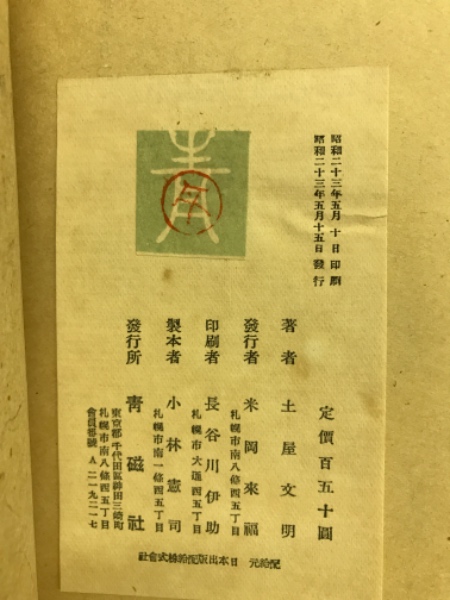 昭和二十三年五月十日印刷
昭和二十三年五月十五日發行
定價百五十圓
著者 土屋文明
發行者 米岡來福
札幌市南八條西五丁目
印刷者 長谷川伊助
札幌市大通西五丁目
製本者 小林憲司
札幌市南一條西五丁目
發行所 靑磁社
東京都千代田區神田三崎町
札幌市南八條西五丁目
會員番號 A二一九二一七
配給元 日本出版配給株式會社
靑